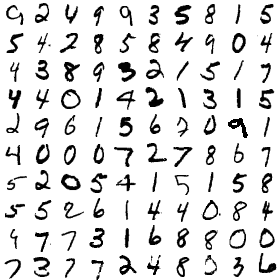 9 2 4 9 9 3 5 8 1 5
5 4 2 8 5 8 4 9 0 4
4 3 8 9 3 2 1 5 1 7
4 4 0 1 4 2 1 3 1 5
2 9 6 1 5 6 7 0 9 1
4 0 0 0 7 2 7 8 6 7
5 2 0 5 4 1 5 1 5 8
5 5 2 6 1 4 4 0 8 4
4 7 7 3 1 6 8 8 0 0
7 3 7 7 2 4 8 0 3 6